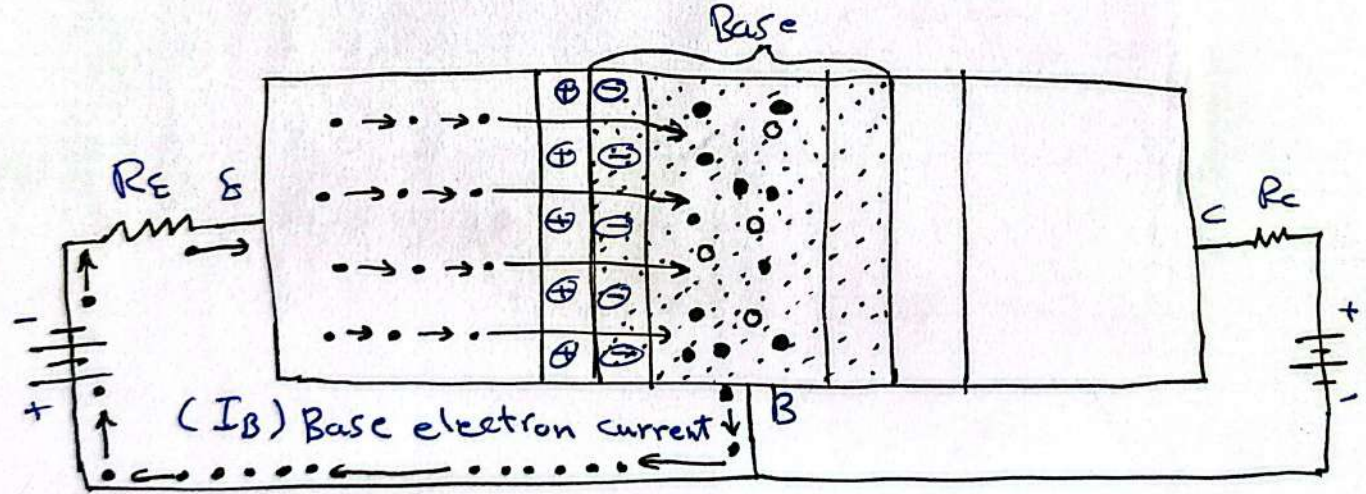 Base
RE E
C RC
- +
+ -
(IB) Base electron current B